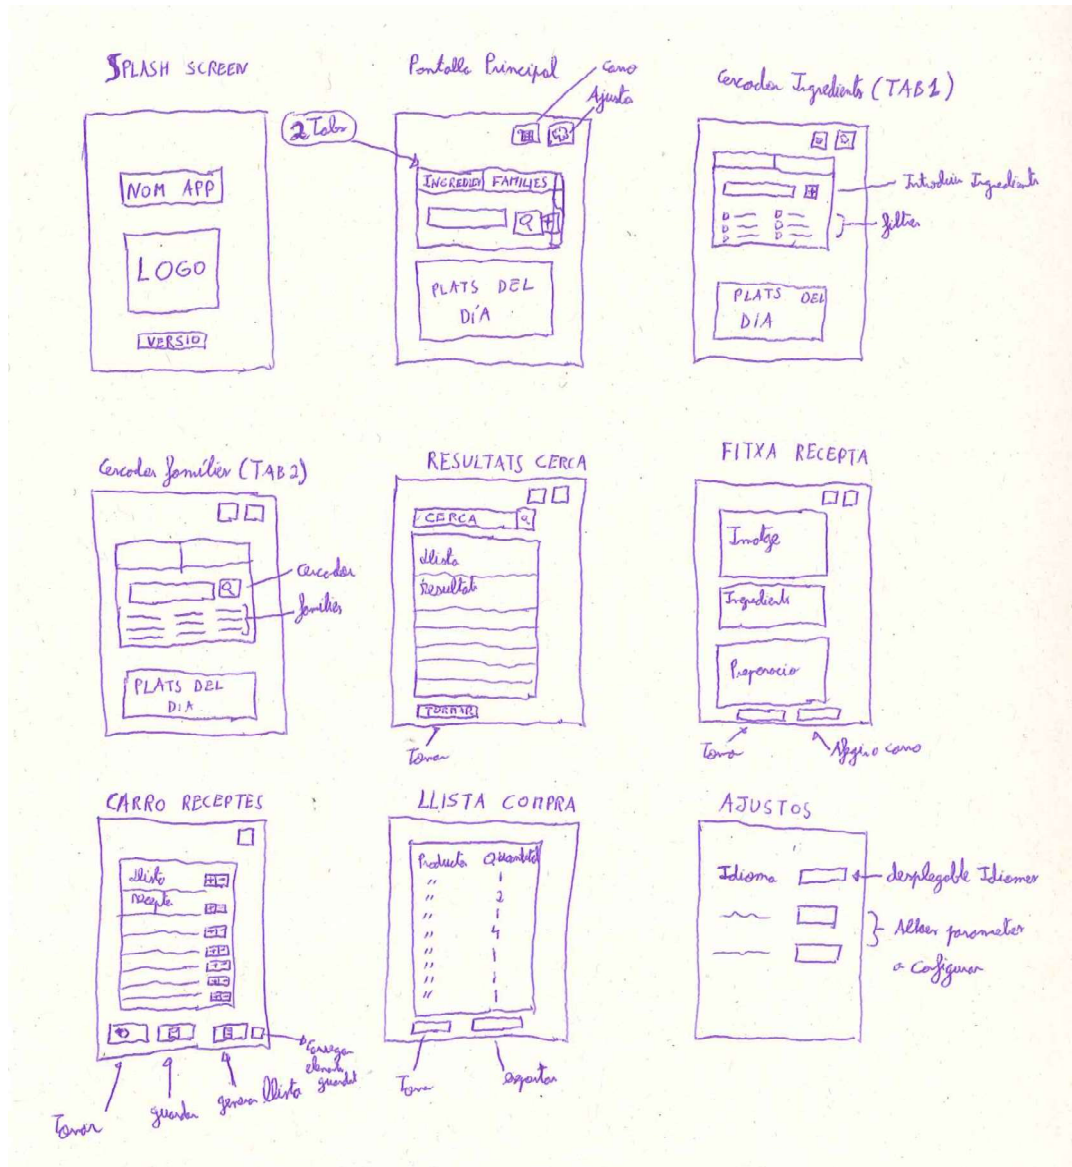 SPLASH SCREEN
NOM APP
LOGO
VERSIO
Pantalla Principal
carro
Ajusts
2 Tabs
INGREDIEN FAMILIES
PLATS DEL
DÍA
Cercador Ingredients (TAB1)
Introduir Ingredients
filtres
PLATS DEL
DIA
Cercador famílies (TAB2)
cercador
famílies
PLATS DEL
DIA
RESULTATS CERCA
CERCA
Llista
Resultats
TORNAR
Tornar
FITXA RECEPTA
Imatge
Ingredients
Preparacio
Tornar
Afegir a carro
CARRO RECEPTES
Llista
recepta
Tornar
guardar
generar llista
Carregar
guardat
LLISTA COMPRA
Producte Quantitat
" 1
" 2
" 1
" 4
" 1
" 1
" 1
" 1
Tornar
exportar
AJUSTOS
Idioma
desplegable Idiomes
Altres parametres
a configurar